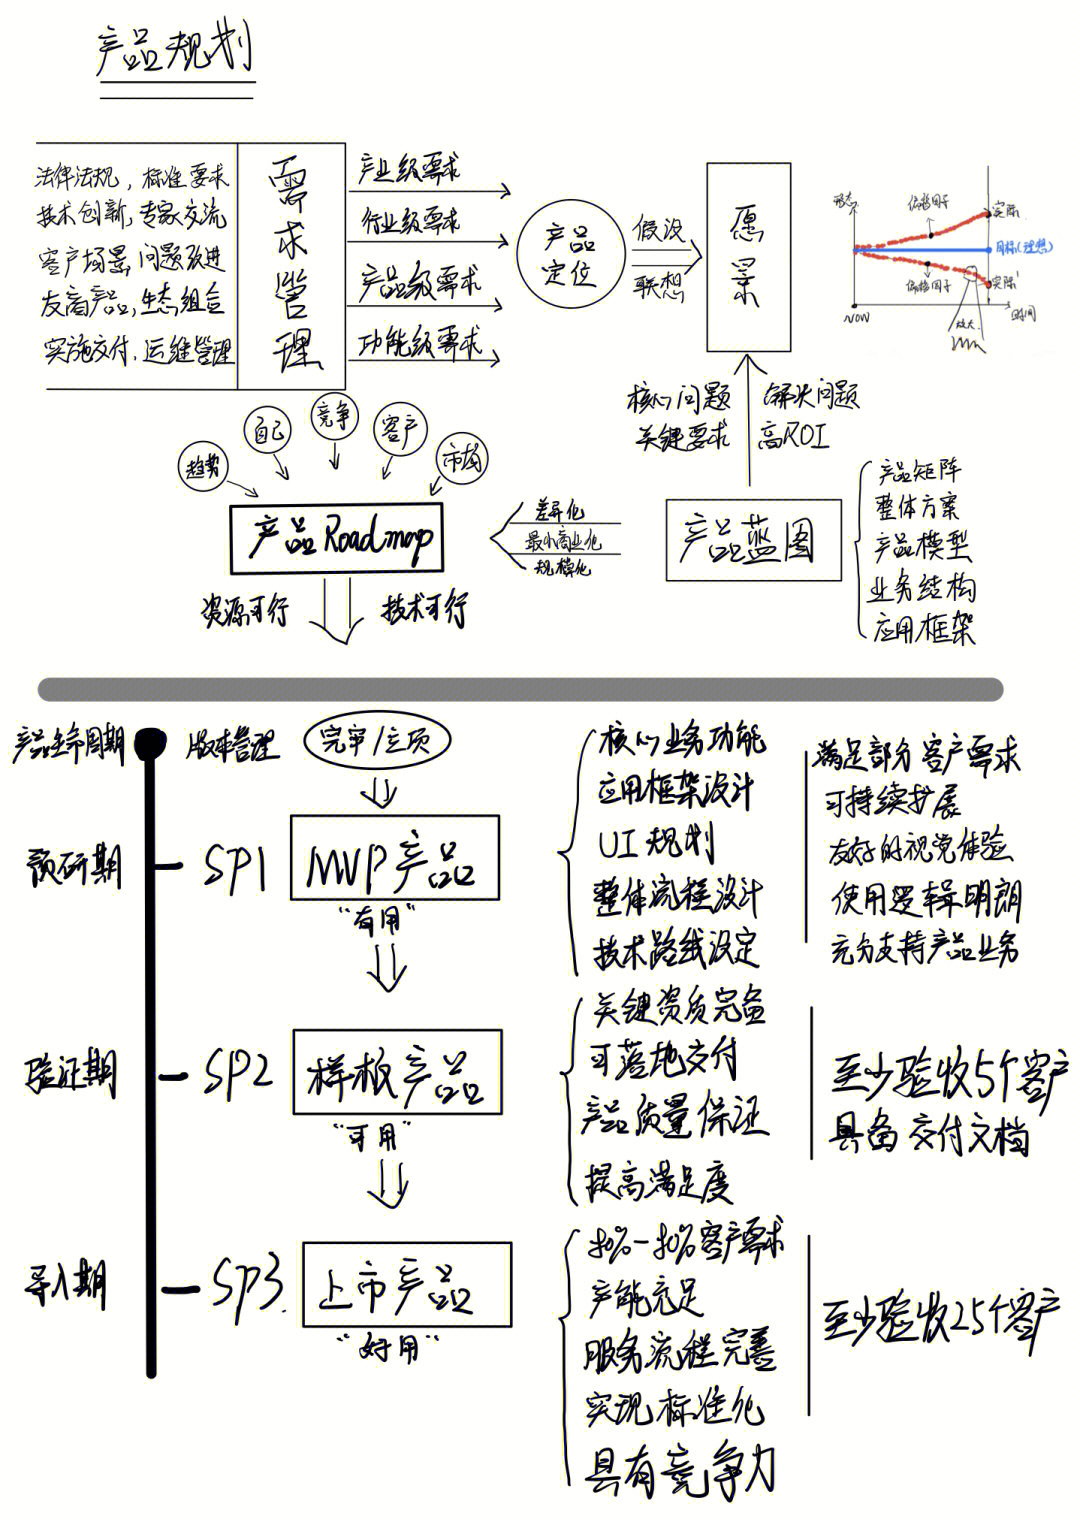 产品规划
法律法规，标准要求
技术创新，专家交流
客户场景，问题改进
友商产品，生态组合
实施交付，运维管理
需求管理
产业级需求
行业级需求
产品级需求
功能级需求
产品
定位
假设
联想
愿景
形态
偏移因子
实际
目标(理想)
偏移因子
实际'
NOW
放大
时间
核心问题
关键要求
解决问题
高ROI
趋势
自己
竞争
客户
市场
产品Roadmap
差异化
最小商业化
规模化
产品蓝图
产品矩阵
整体方案
产品模型
业务结构
应用框架
资源可行
技术可行
产品生命周期
版本管理
完审/立项
预研期
SP1
MVP产品
"有用"
核心业务功能
应用框架设计
UI规划
整体流程设计
技术路线设定
满足部分客户需求
可持续扩展
友好的视觉体验
使用逻辑明朗
充分支持产品业务
验证期
SP2
样板产品
"可用"
关键资质完备
可落地交付
产品质量保证
提高满足度
至少验收5个客户
具备交付文档
导入期
SP3.
上市产品
"好用"
客户需求
产能充足
服务流程完善
实现标准化
具有竞争力
至少验收25个客户